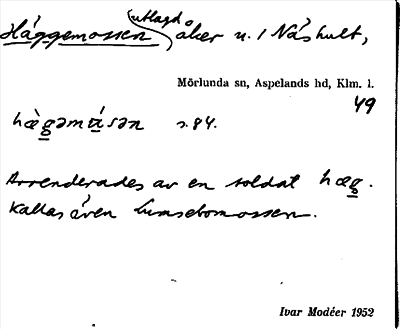 Häggemossen utlagd åker u. 1 Näshult,
Mörlunda sn, Aspelands hd, Klm. l.
49
hæ̀gəmɷ́sən s. 84.
Arrenderades av en soldat hæg.
Kallas även Lumsebomossen.
Ivar Modéer 1952